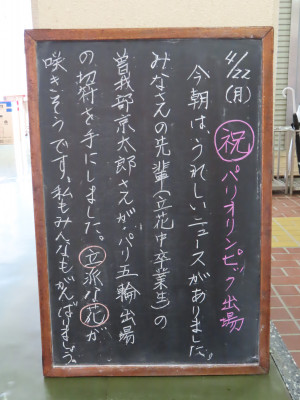 4/22(月)
祝 パリオリンピック出場
今朝は、うれしいニュースがありました。
みなさんの先輩(立花中卒業生)の
曽我部京太郎さんが、パリ五輪出場
の切符を手にしました。立派な花が
咲きそうです。私もみんなもがんばりましょう。